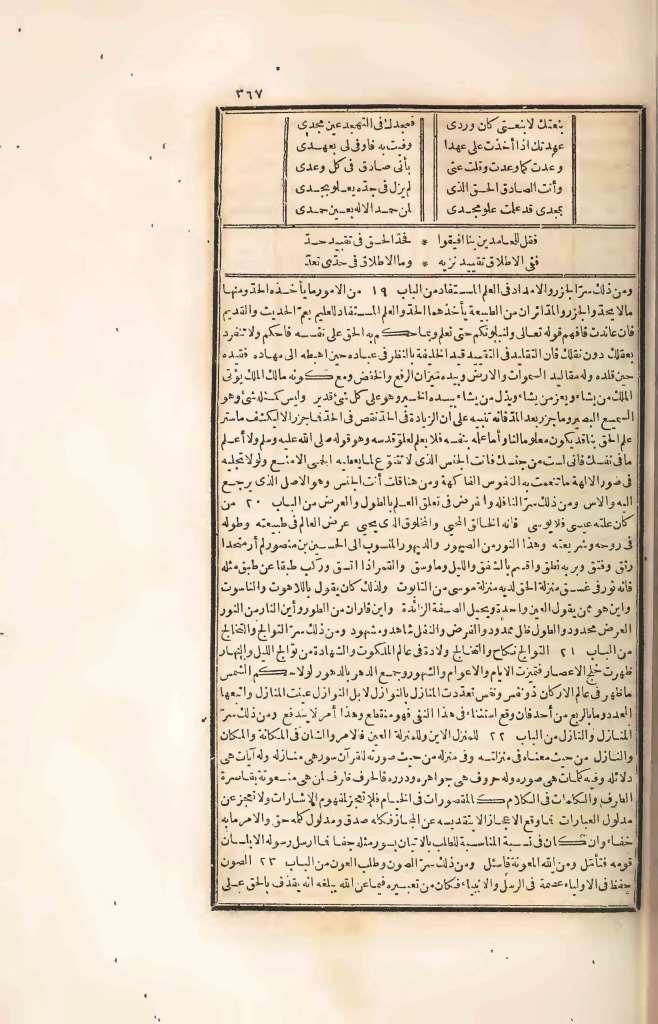 ٣٦٧
بنعتك لا بنعتي كان وردى فمجدك فى التهجد عين مجدى
عهدتك اذ أخذت على عهدا وفيت به فاوفى لى بعهدى
وعدت كما وعدت وقلت عنى بأنى صادق فى كل وعدى
وأنت الصادق الحق الذى لم يزل فى جدّه يعلو بمجدى
بمجدى قد علمت علو مجدى لمن حمد الاله بعين حمدى
فقل للحامدين بنا افيقوا * فحمد الحق فى تقييد حدّ
ففى الاطلاق تقييد نزيه * وما الاطلاق فى حدّى بعدّ
ومن ذلك سرّ الجزر والامداد فى العلم المستفاد من الباب ١٩ من الامور ما يأخذه الحدّ ومنها
ما لا يحدّ والجزر والمدّ اثران من الطبيعة يأخذهما الحدّ والعلم المستفاد للعليم يعمّ الحديث والقديم
فان عاندت فافهم قوله تعالى ولنبلونكم حتى نعلم وبما حكم به الحق على نفسه فاحكم ولا تنفرد
بعقلك دون نقلك فان التقليد فى التقييد قيد الخليفة بالنظر فى عباده حين اهبطه الى مهاده فقيده
حين قلده وله مقاليد السموات والارض وبيده ميزان الرفع والخفض ومع كونه مالك الملك يؤتى
الملك من يشاء ويعز من يشاء ويذل من يشاء بيده الخير وهو على كل شئ قدير وليس كمثله شئ وهو
السميع البصير وما جزر بعد المدّ فانه تنبيه على ان الزيادة فى الحدّ نقص فى الحدّ فما جزر الا ليكشف ما ستر
علم الحق بنا قد يكون معلوما لنا وأما علمه بنفسه فلا يعلم لعلوّ قدسه وهو قوله صلى الله عليه وسلم ولا أعلم
ما فى نفسك فانى لست من جنسك فانت الجنس الذى لا تتنوع لما يعطيه الحمى الامنع ولولا تجليه
فى صور الالهة ما تنعمت به النفوس الفاكهة ومن هنا قلت أنت الجنس وهو الاصل الذى يرجع
اليه والاس ومن ذلك سرّ النافلة والفرض فى تعلق العلم بالطول والعرض من الباب ٢٠ من
كان علته عيسى فلا يوسى فانه الخالق المحيى والمخلوق الذى يحيى عرض العالم فى طبيعته وطوله
فى روحه وشريعته وهذا النور من الصيهور والديهور المنسوب الى الحسين بن منصور لم أر متحدا
رتق وفتق وبربه نطق واقسم بالشفق والليل وما وسق والقمر اذا اتسق وركب طبقا عن طبق مثله
فانه نور فى غسق منزلة الحق لديه منزلة موسى من التابوت ولذلك كان يقول باللاهوت والناسوت
واين هو ممن يقول العين واحدة ويحيل الصفة الزائدة واين فاران من الطور وأين النار من النور
العرض محدود والطول ظل ممدود والفرض والنفل شاهد ومشهود ومن ذلك سرّ التوالج والتخالج
من الباب ٢١ التوالج نكاح والتخالج ولادة فى عالم الملكوت والشهادة من توالج الليل والنهار
ظهرت خلج الاعصار فتميزت الايام والاعوام والشهور وجمع الدهر بالدهور لولا حكم الشمس
ما ظهر فى عالم الاركان ذو نفس ونفس تعدّدت المنازل بالنوازل لا بل النوازل عينت المنازل واتبعها
العدد وما بالربع من أحد فان وقع استثناء فى هذا النفى فهو منقطع وهذا أمر لا يندفع ومن ذلك سرّ
المنازل والنازل من الباب ٢٢ للمنزل الاين وللمنزلة العين فالامر والشان فى المكانة والمكان
والنازل من حيث معناه فى منزلته وفى منزله من حيث صورته للقرآن سور هى منازله وله آيات هى
دلائله وفيه كلمات هى صوره وله حروف هى جواهره ودرره فالحرف ظرف لمن هى منعوتة بقاصرة
الطرف والكلمات فى الكلام كالمقصورات فى الخيام فلا تعجز لمفهوم الاشارات ولا تعجز عن
مدلول العبارات فما وقع الاعجاز الا بتقديسه عن المجاز فكله صدق ومدلول كلمه حق والامر ما به
خفاء وان كان فى نسبة المناسبة للطلب بالاتيان بسورة مثله جفا فما ارسل رسول الا بلسان
قومه فتأمل ومن الله المعونة فاسئل ومن ذلك سرّ الصون وطلب العون من الباب ٢٣ الصون
حفظ فى الاولياء عصمة فى الرسل والانبياء فكان من تعبيره فيما عن الله يبلغه انه يقذف بالحق على